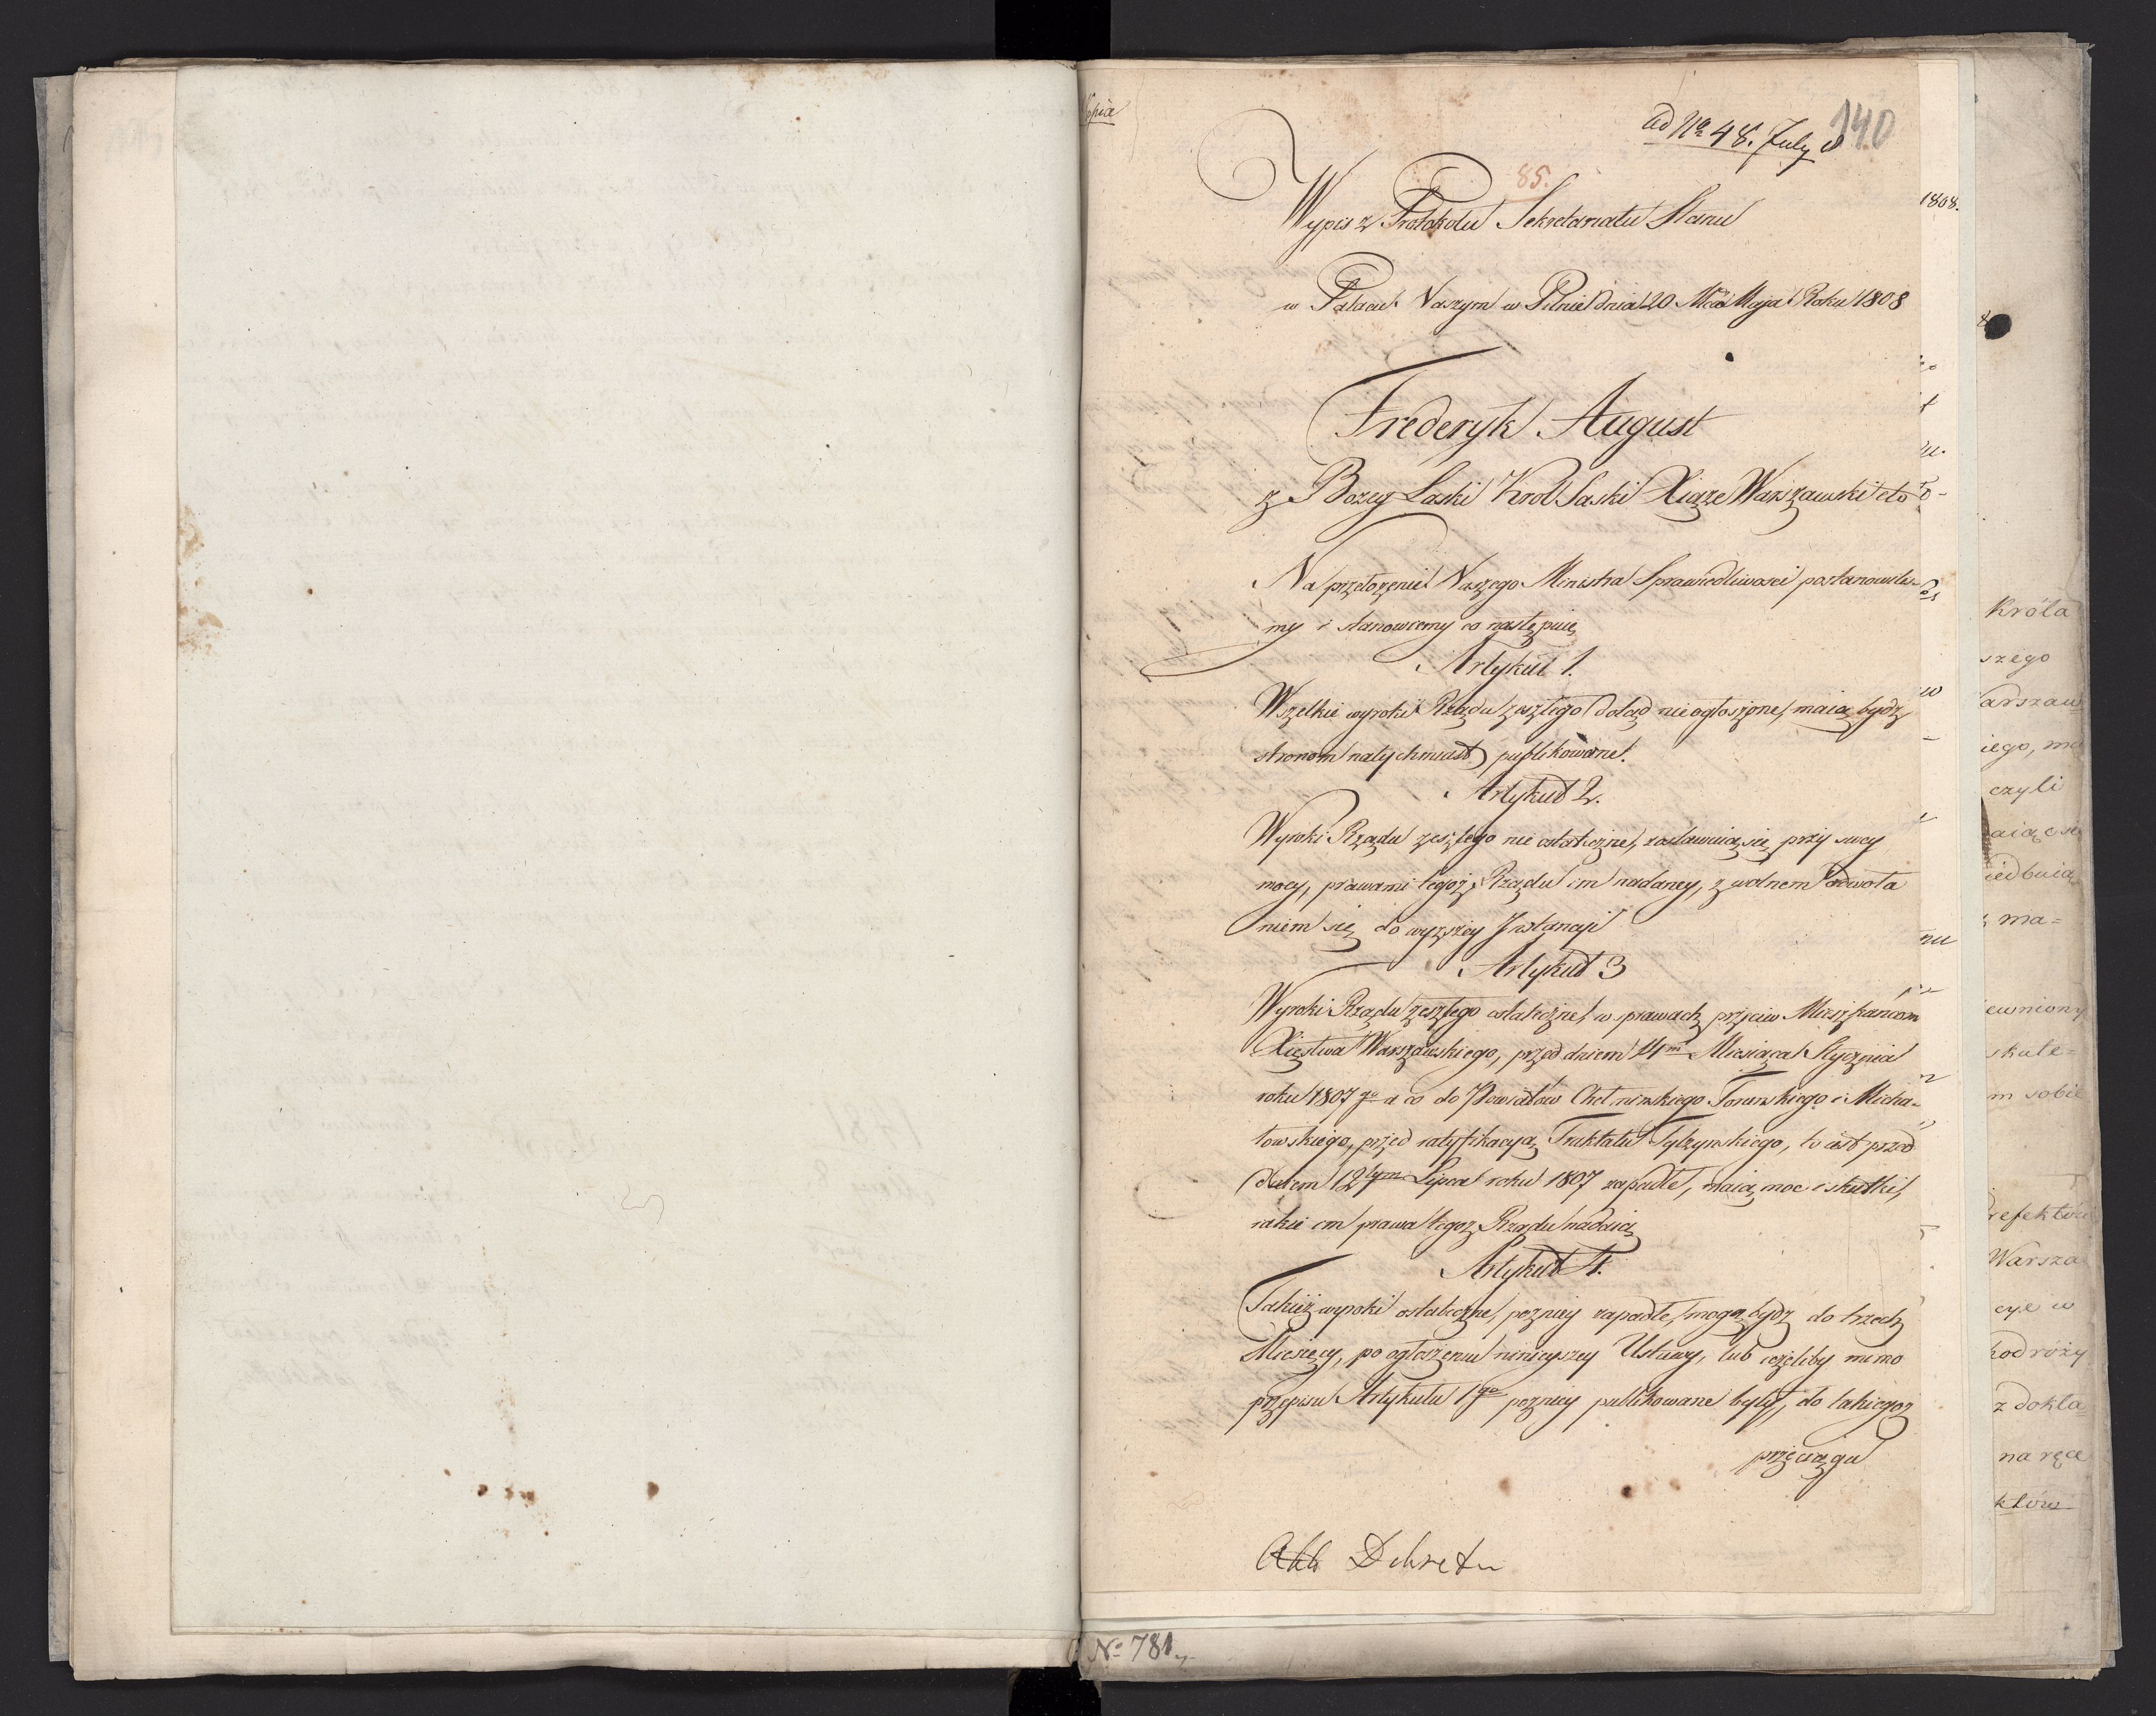 Kopia
ad No 48. July 8
140
85.
Wypis z Protokołu Sekretariatu Stanu
w Pałacu Naszym w Pilnie dnia 20 Mca Maja Roku 1808
Fryderyk August
z Bozey Łaski Krol Saski Xiąze Warszawski etc
Na przełożenie Naszego Ministra Sprawiedliwosci postanowilis-
my i stanowiemy co następuię
Artykuł 1.
Wszelkie wyroki Rządu zeszłego dotąd nieogłoszone, maią bydz
stronom natychmiast publikowane.
Artykuł 2.
Wyroki Rządu zeszłego nie ostateczne, zostawuią się przy swey
mocy, prawami tegoż Rządu im nadaney, z wolnem odwoła
niem się do wyzszey Instancyi
Artykuł 3
Wyroki Rządu zeszłego ostateczne, w sprawach przeciw Mieszkańcom
Xięstwa Warszawskiego, przed dniem 14m Miesiąca Stycznia
roku 1807go a co do Powiatów Chełminskiego Torunskiego i Micha-
łowskiego, przed ratyfikacyą Traktatu Tylzynskiego, to iest przed
dniem 12tym Lipca roku 1807 zapadłe, maią moc i skutki,
iakie im prawa tegoz Rządu nadaią
Artykuł 4.
Takież wyroki ostateczne, pozniey zapadłe, mogą bydz do trzech
Miesięcy, po ogłoszeniu ninieyszey Ustawy, lub ieżeliby mimo
przepisu Artykułu 1go pozniey publikowane były, do takiegoz
przeciągu
Akt Dekretu
No 781
1808.
Króla
szego
arszaw
iego, ma
czyli
aiące
iedbuią
ma=
ewniony
skute=
m sobie
refektów
Warsza
cye w
podróży
z dokła=
na ręce
któw